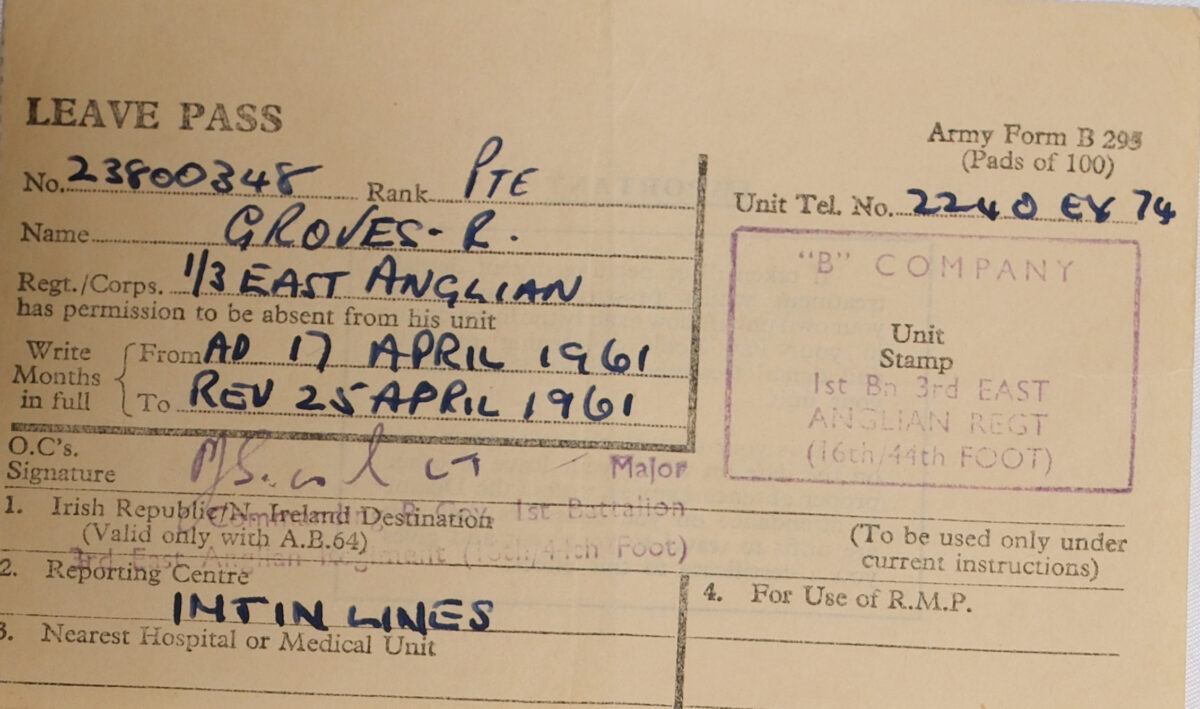 LEAVE PASS
Army Form B 295
(Pads of 100)
No. 23800348 Rank PTE
Unit Tel. No. 2240 EX 74
Name GROVES- R.
Regt./Corps. 1/3 EAST ANGLIAN
has permission to be absent from his unit
Write Months in full
From AD 17 APRIL 1961
To REV 25 APRIL 1961
"B" COMPANY
Unit
Stamp
1st Bn 3rd EAST
ANGLIAN REGT
(16th/44th FOOT)
O.C's.
Signature LT Major
1. Irish Republic/N. Ireland Destination
(Valid only with A.B.64)
Commanding B Coy 1st Battalion
3rd East Anglian Regiment (16th/44th Foot)
(To be used only under
current instructions)
2. Reporting Centre
INTIN LINES
3. Nearest Hospital or Medical Unit
4. For Use of R.M.P.